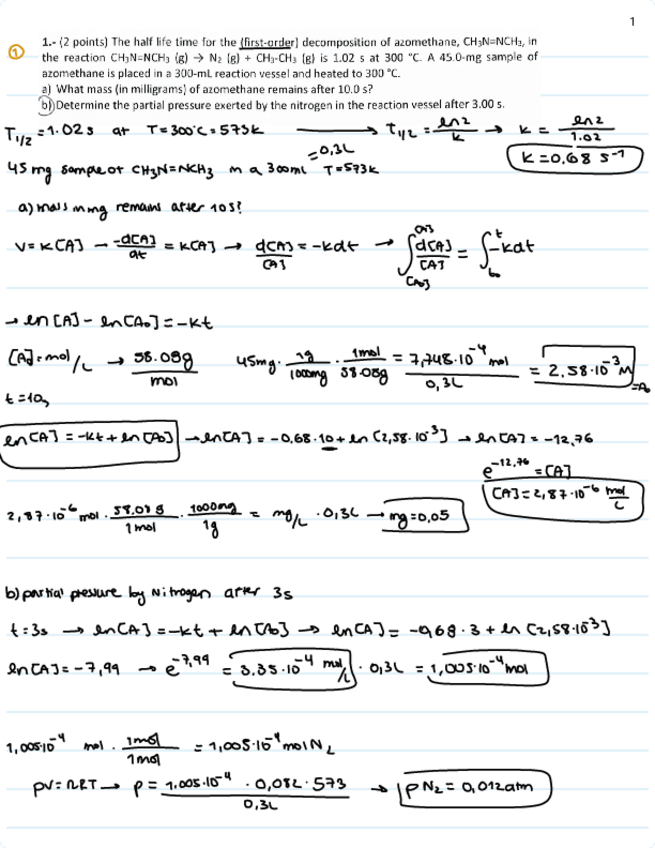 1
① 1.- (2 points) The half life time for the (first-order) decomposition of azomethane, CH₃N=NCH₃, in
the reaction CH₃N=NCH₃ (g) → N₂ (g) + CH₃-CH₃ (g) is 1.02 s at 300 °C. A 45.0-mg sample of
azomethane is placed in a 300-mL reaction vessel and heated to 300 °C.
a) What mass (in milligrams) of azomethane remains after 10.0 s?
b) Determine the partial pressure exerted by the nitrogen in the reaction vessel after 3.00 s.
T1/2 = 1.02s at T=300°C = 573K → T1/2 = ln2/K → K = ln2/1.02
K=0,68 s⁻¹
45 mg sample of CH₃N=NCH₃ in a 300ml =0,3L T=573K
a) mass in mg remains after 10s?
V=K[A] → -d[A]/dt = K[A] → d[A]/[A] = -Kdt → ∫[A₀][A] d[A]/[A] = ∫t₀t -Kdt
→ ln[A] - ln[A₀] = -Kt
[A]=mol/L → 58.08g/mol 45mg · 1g/1000mg · 1mol/58.08g = 7,748·10⁻⁴ mol / 0,3L = 2,58·10⁻³ M =A₀
t=10s
ln[A] = -Kt + ln[A₀] → ln[A] = -0,68·10 + ln [2,58·10⁻³] → ln[A] = -12,76
e⁻¹²·⁷⁶ = [A]
[A] = 2,87·10⁻⁶ mol/L
2,87·10⁻⁶ mol · 58.08 g/1mol · 1000mg/1g = mg/L · 0,3L → mg=0,05
b) partial pressure by Nitrogen after 3s
t=3s → ln[A] = -Kt + ln[A₀] → ln[A] = -0,68·3 + ln [2,58·10⁻³]
ln[A] = -7,99 → e⁻⁷·⁹⁹ = 3.35·10⁻⁴ mol/L · 0,3L = 1,005·10⁻⁴ mol
1,005·10⁻⁴ mol · 1mol/1mol = 1,005·10⁻⁴ mol N₂
PV=nRT → P = 1.005·10⁻⁴ · 0,082 · 573 / 0,3L → pN₂ = 0,012atm